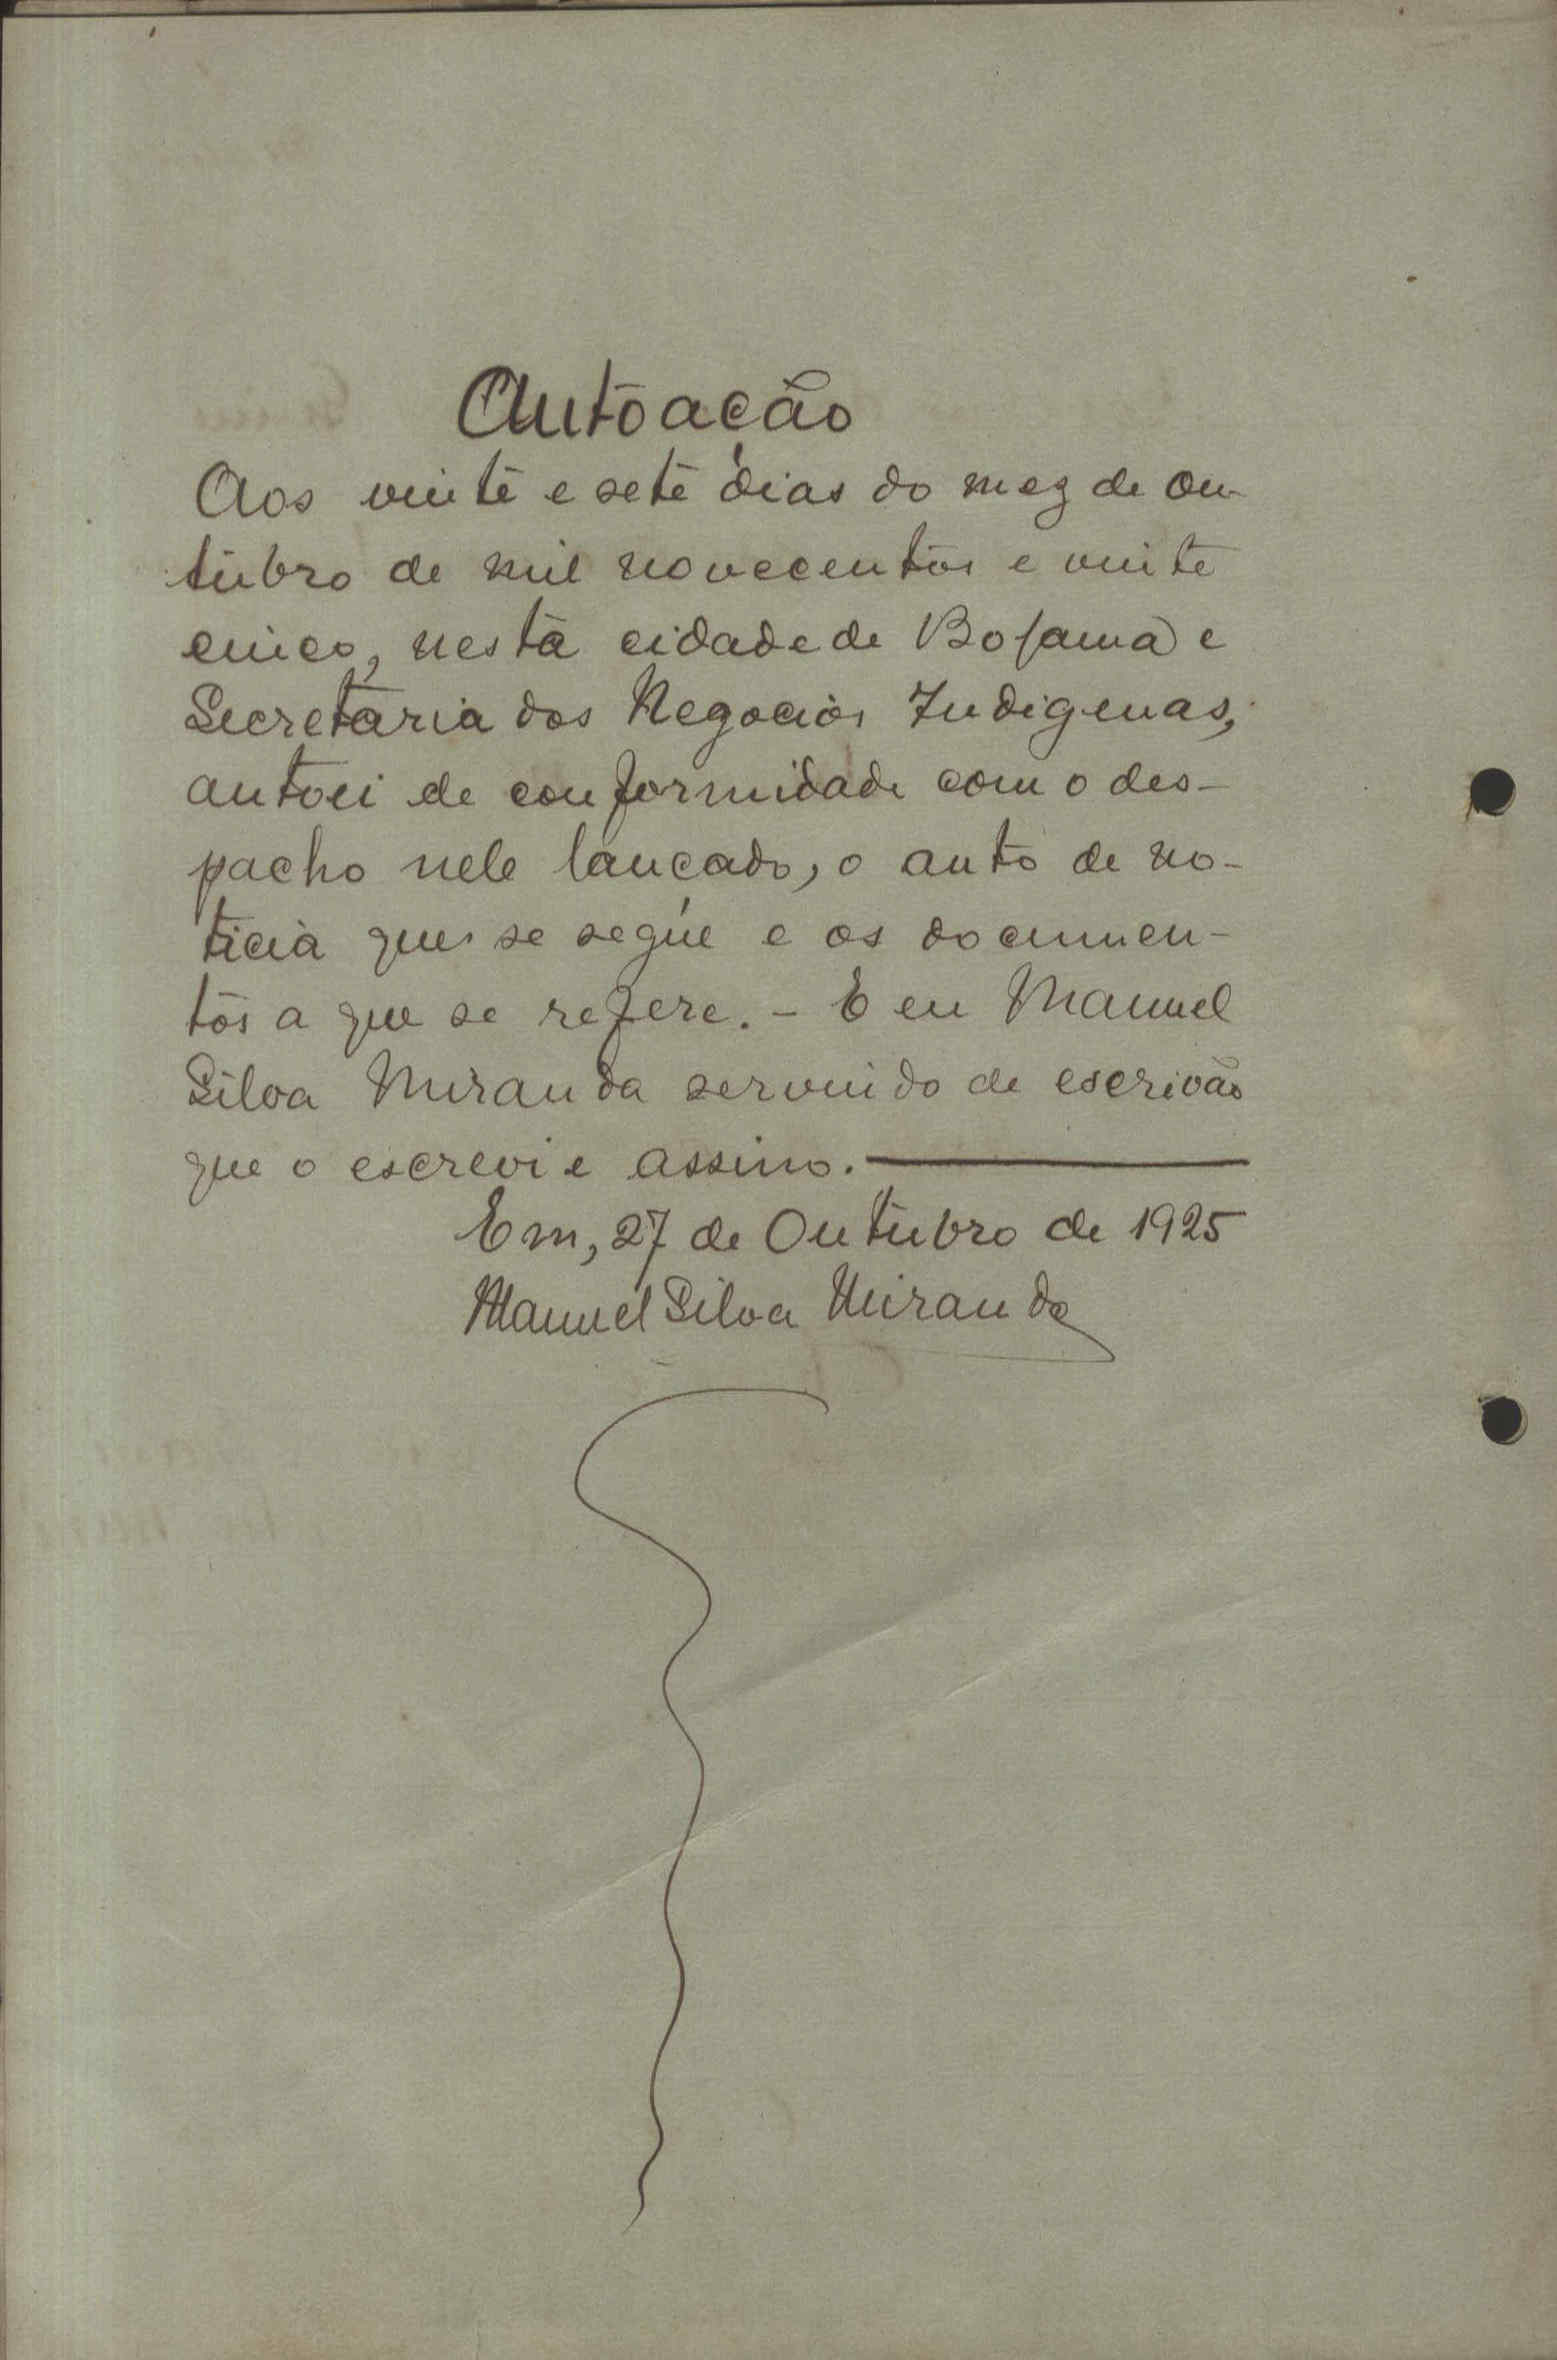 Autoação
Aos vinte e sete dias do mez de Ou-
tubro de mil novecentos e vinte
cinco, nesta cidade de Bolama e
Secretaria dos Negocios Indigenas,
autoei de conformidade com o des-
pacho nele lançado, o auto de no-
ticia que se segue e os documen-
tos a que se refere. - E eu Manuel
Silva Miranda servindo de escrivão
que o escrevi e assino.
Em, 27 de Outubro de 1925
Manuel Silva Miranda